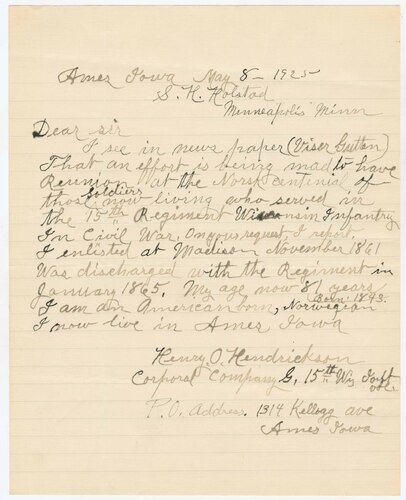 Ames Iowa May 8 - 1925
S. H. Holstad
Minneapolis Minn
Dear sir
I see in news paper (Viser Gutten)
That an effort is being mad to have
Reunion at the Norsk centinial of
those Soldiers now living who served in
the 15th Regiment Wisconsin Infantry
In Civil War. On your request I report.
I enlisted at Madison November 1861
Was discharged with the Regiment in
January 1865. My age now 81 years
Born 1843.
I am an American born, Norwegian
I now live in Ames Iowa
Henry O. Hendrickson
Corporal Company G, 15th Wis Inft
vol.
P.O. Address. 1314 Kellogg ave
Ames Iowa